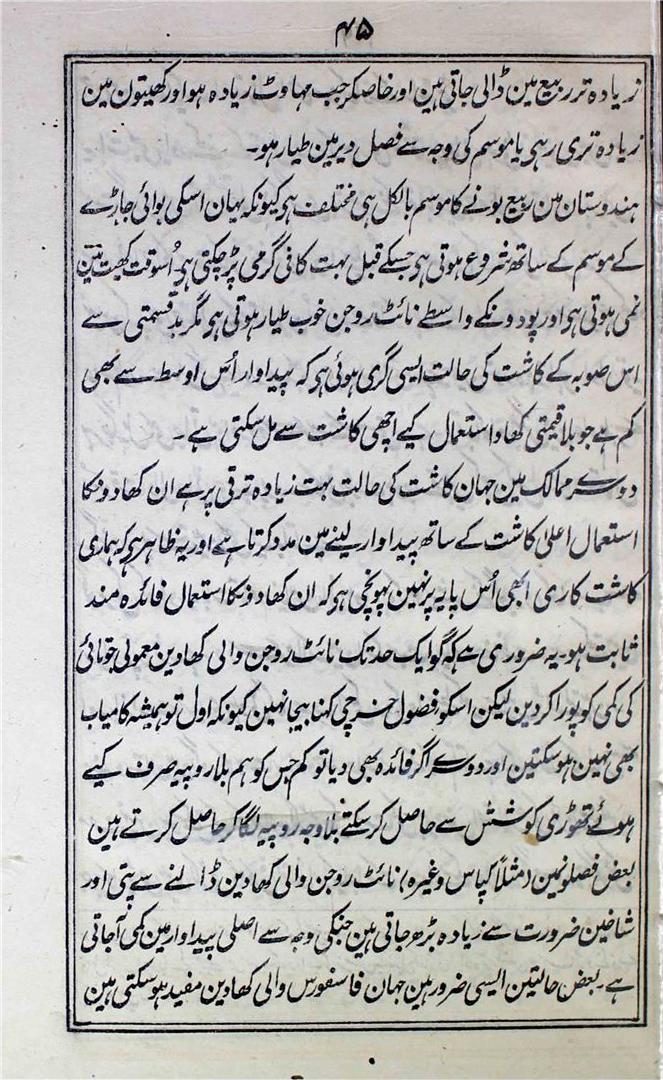 ۴۵
زیادہ تر ربیع مین ڈالی جاتی ہین اور خاصکر جب مہاوٹ زیادہ ہو اور کھیتون مین
زیادہ تری رہی یا موسم کی وجہ سے فصل دیر مین طیار ہو۔
ہندوستان مین ربیع بونے کا موسم بالکل ہی مختلف ہو کیونکہ یہان اسکی بوائی جاڑے
کے موسم کے ساتھ شروع ہوتی ہی جسکے قبل بہت کافی گرمی پڑ چکتی ہی۔ اُسوقت کھیت مین
نمی ہوتی ہو اور پودونکے واسطے نائٹروجن خوب طیار ہوتی ہو مگر بدقسمتی سے
اس صوبہ کے کاشت کی حالت ایسی گری ہوئی ہی کہ پیداوار اُس اوسط سے بھی
کم ہے جو بلا قیمتی کھاد استعمال کیے اچھی کاشت سے مل سکتی ہے۔
دوسرے ممالک مین جہان کاشت کی حالت بہت زیادہ ترقی پر ہے ان کھادونکا
استعمال اعلیٰ کاشت کے ساتھ پیداوار لینے مین مدد کرتا ہے اور یہ ظاہر ہی کہ ہماری
کاشت کاری ابھی اُس پایہ پر نہین پہونچی ہی کہ ان کھادونکا استعمال فائدہ مند
ثابت ہو۔ یہ ضروری ہے کہ گو ایک حد تک نائٹروجن والی کھادین معمولی جوتائی
کی کمی کو پورا کر دین لیکن اسکو فضول خرچی کہنا بیجا نہین کیونکہ اول تو ہمیشہ کامیاب
بھی نہین ہو سکتین اور دوسرے اگر فائدہ بھی دیا تو کم جس کو ہم بلا روپیہ صرف کیے
ہوئے تھوڑی کوشش سے حاصل کر سکتے بلاوجہ روپیہ لگا کر حاصل کرتے ہین
بعض فصلونمین (مثلاً کپاس وغیرہ) نائٹروجن والی کھادین ڈالنے سے پتی اور
شاخین ضرورت سے زیادہ بڑھ جاتی ہین جنکی وجہ سے اصلی پیداوار مین کمی آجاتی
ہے۔ بعض حالتین ایسی ضرور ہین جہان فاسفورس والی کھادین مفید ہو سکتی ہین